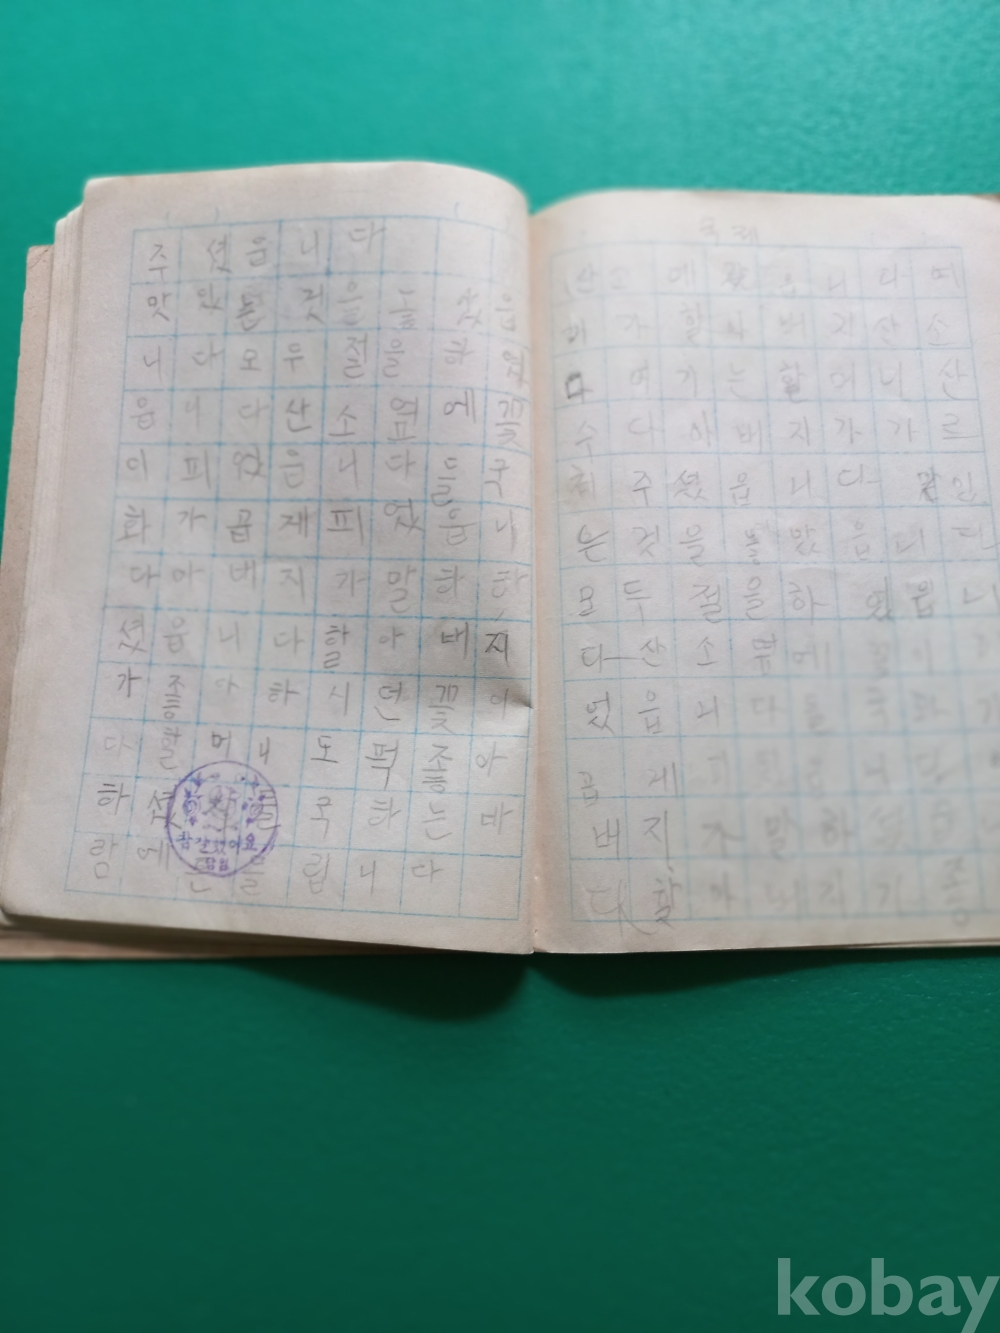 주셨읍니다
맛있는 것을 놓았읍
니다모두 절을 하였
읍니다산소옆에꽃
이피었읍니다들국
화가곱게피었읍니
다아버지가말하
셨읍니다할아버지
가좋아하시던꽃이
다할머니도퍽좋아
하셨들국하는바
람에흔들립니다
참잘했어요
국제
산소에갔읍니다여
기가할아버지산소
다여기는할머니산
수다아버지가가르
쳐주셨읍니다맛있
은것을놓았음니다
모두절을하였읍니
다산소옆에꽃이
었읍니다들국화가
곱게
버지가말하
다할아버지가좋
kobay